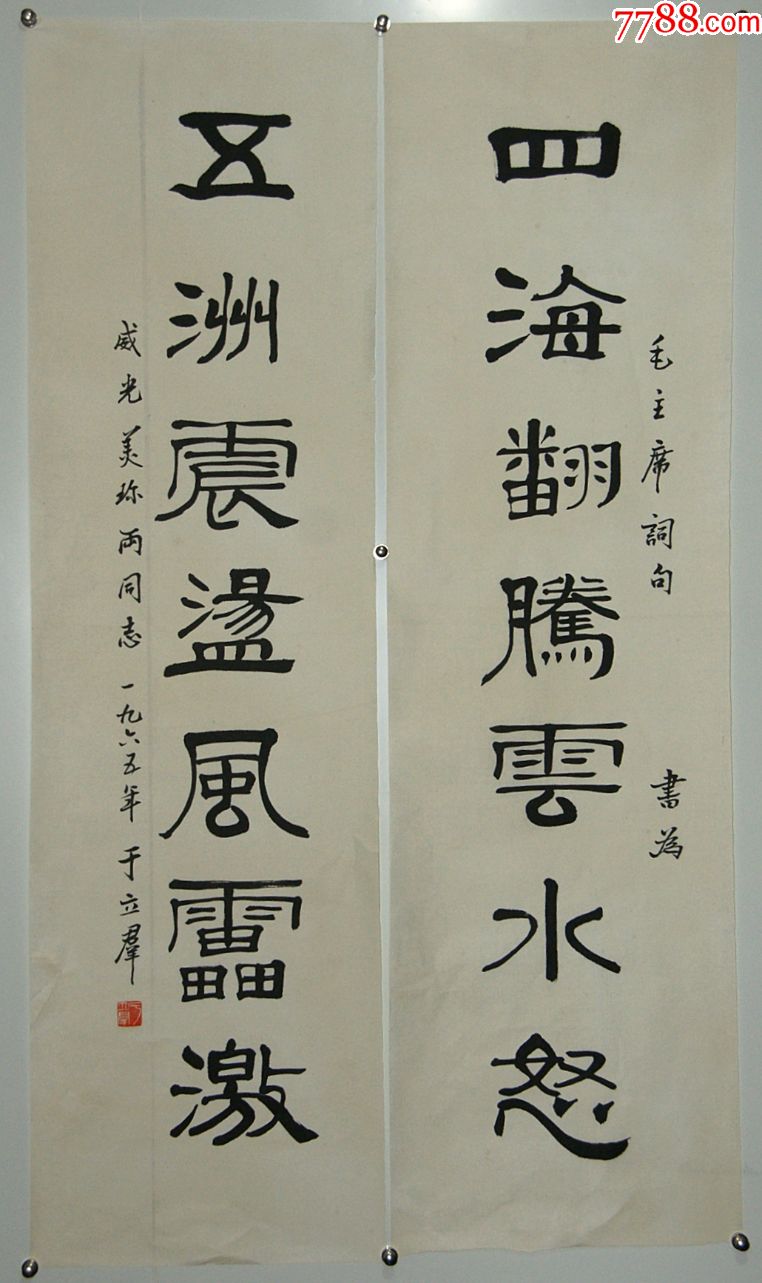 7788.com
毛主席詞句 書為
四海翻騰雲水怒
五洲震盪風靁激
威光 美珎兩同志 一九六五年 于立羣